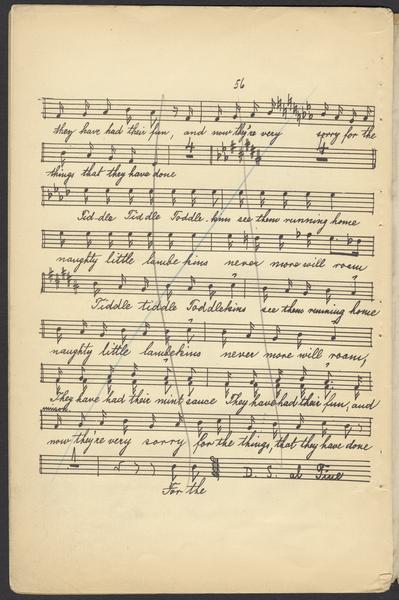 56
they have had their fun, and now they're very sorry for the
4 4
things that they have done
Tid-dle Tiddle Toddle-kins see them running home
naughty little lambekins never more will roam
Tiddle tiddle Toddlekins see them running home
naughty little lambekins never more will roam,
They have had their mint sauce They have had their fun, and
unison.
now they're very sorry for the things, that they have done
1 D. S. al Fine
For the